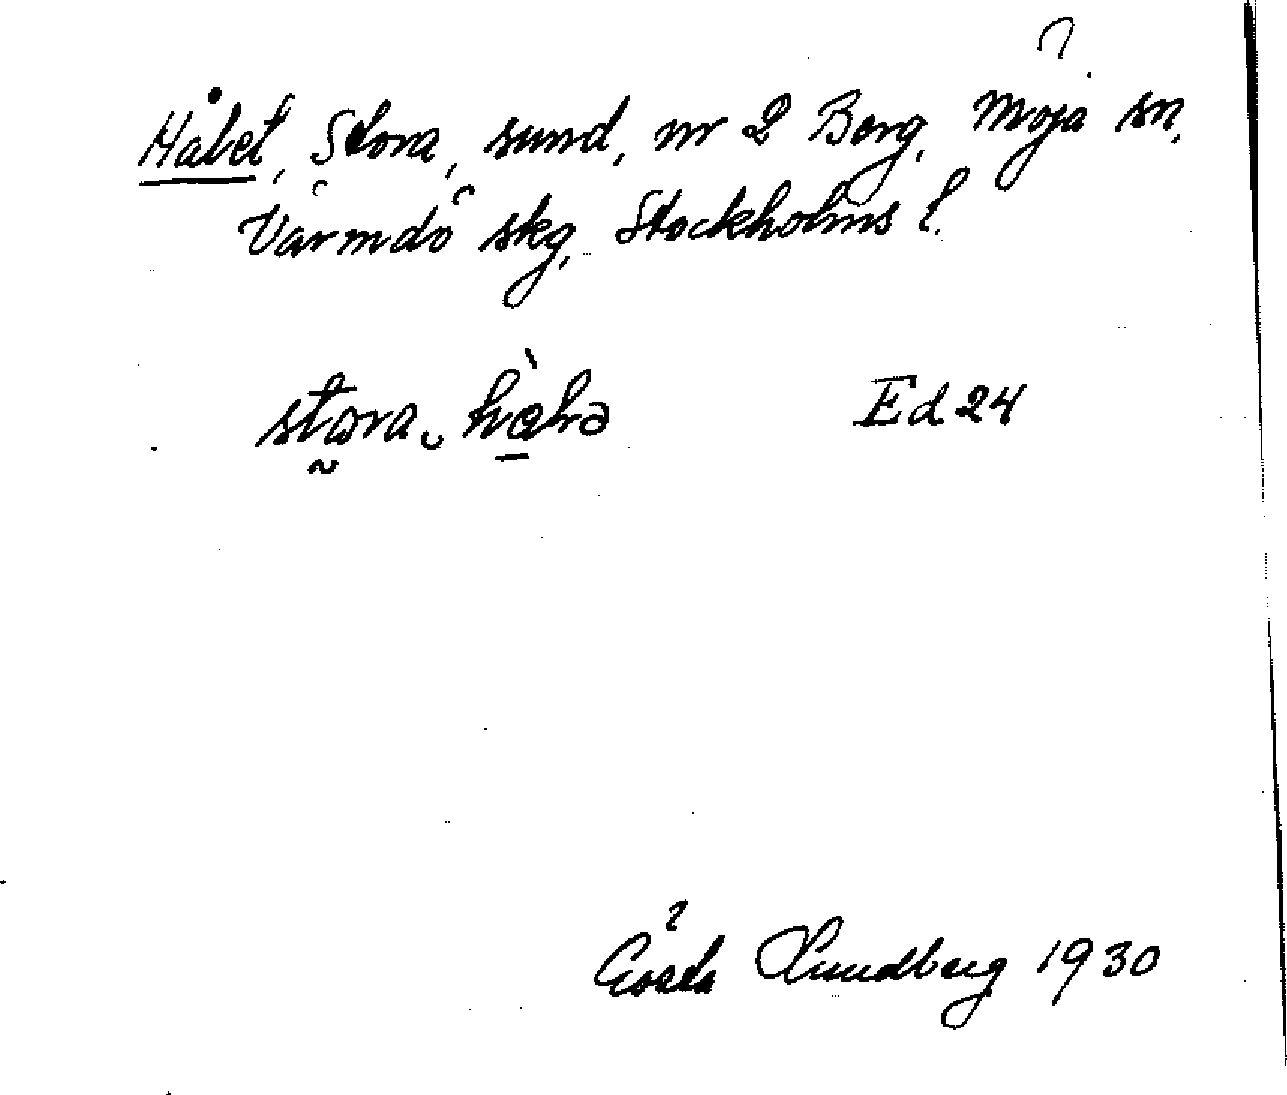 Håbet, Stora, sund, nr 2 Berg, Möja sn,
Värmdö skg, Stockholms l.
Ed 24
Gösta Lundberg 1930